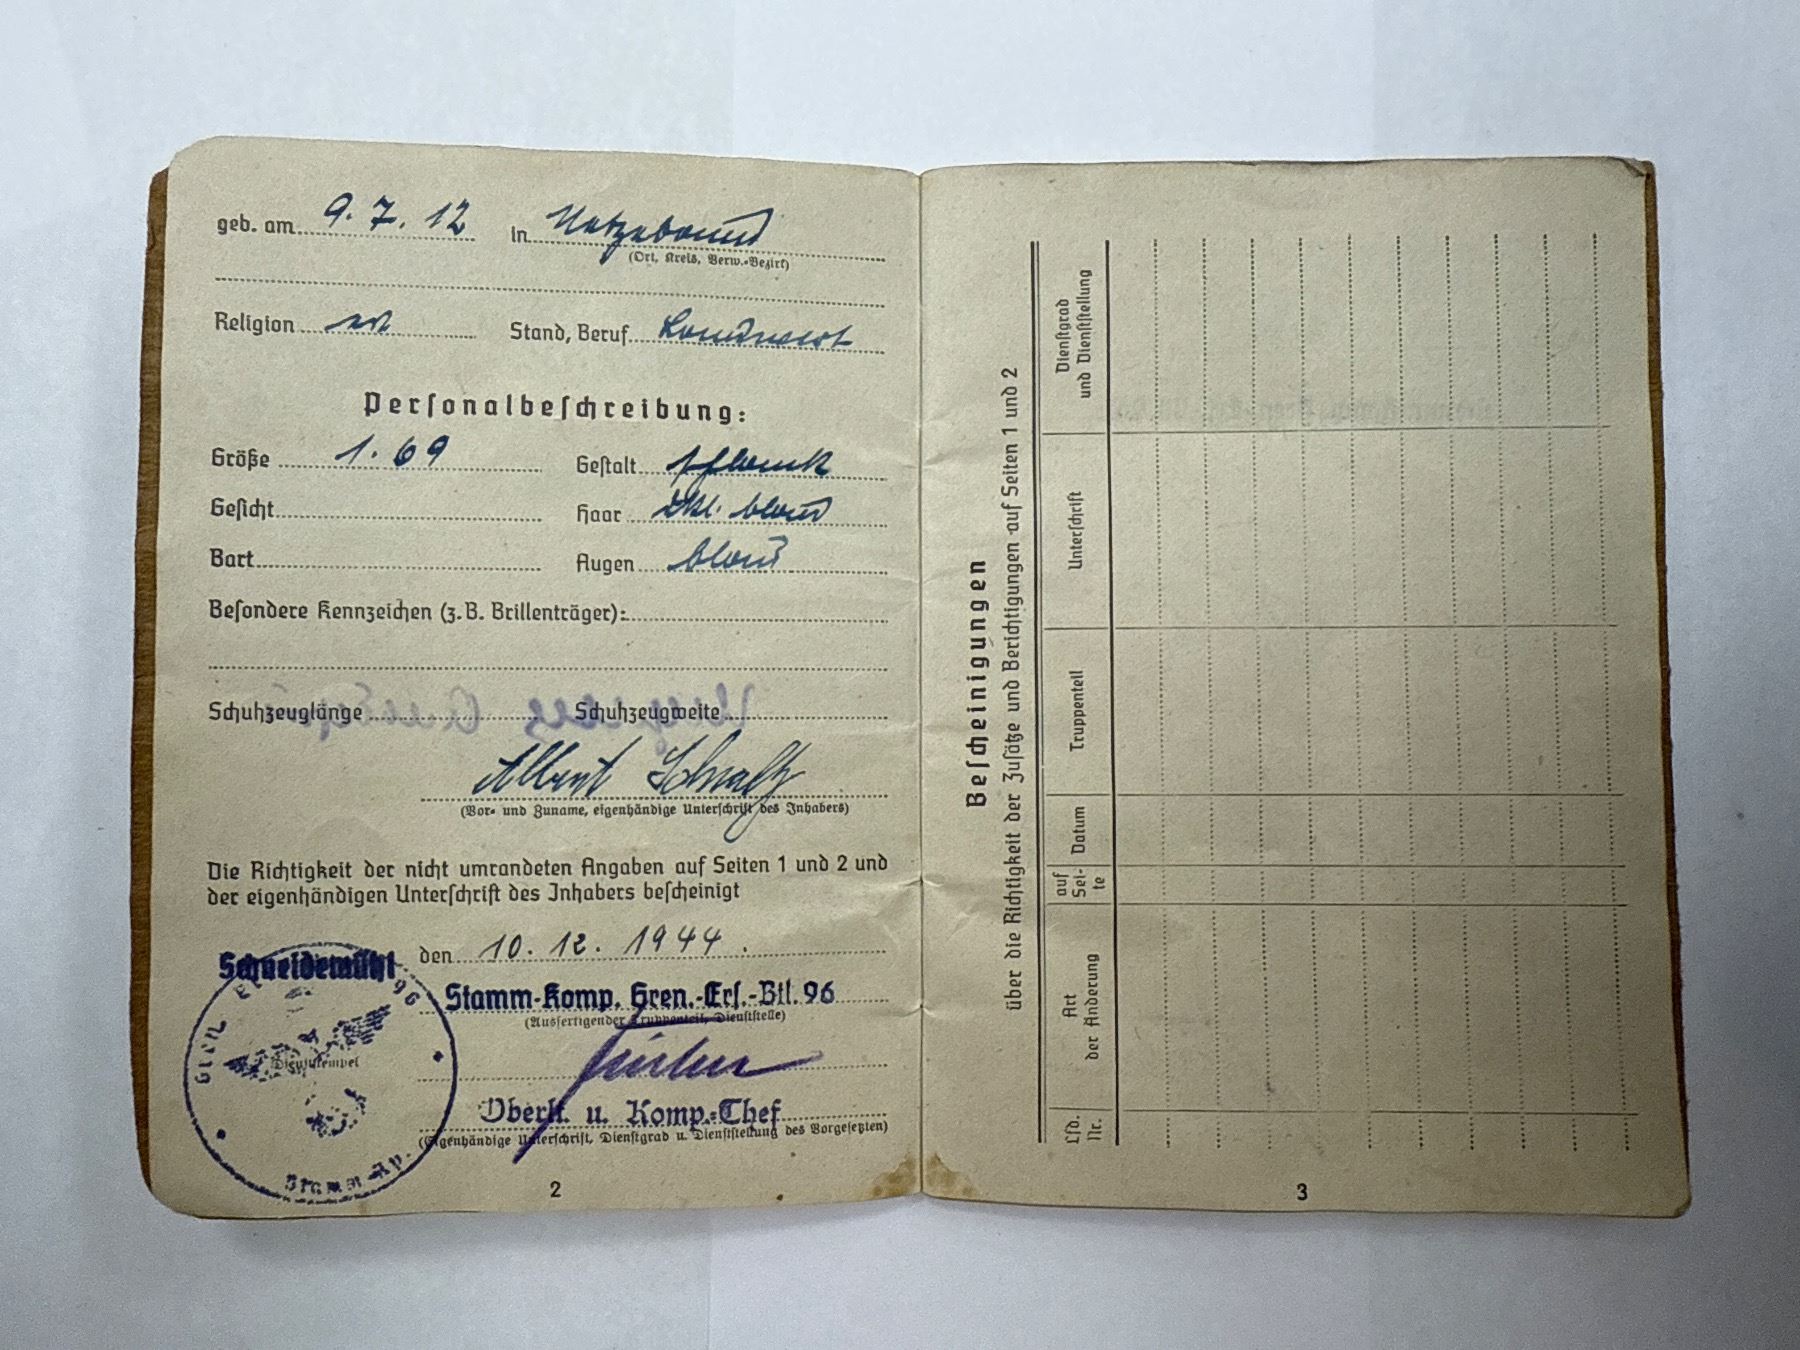 geb. am 9. 7. 12 in
(Ort, Kreis, Verw.-Bezirk)
Religion ev Stand, Beruf Landwirt
Personalbeschreibung:
Größe 1.69 Gestalt schlank
Gesicht Haar dkl. blond
Bart Augen blau
Besondere Kennzeichen (z. B. Brillenträger):
Schuhzeuglänge Schuhzeugweite
Albert Schmalz
(Vor- und Zuname, eigenhändige Unterschrift des Inhabers)
Die Richtigkeit der nicht umrandeten Angaben auf Seiten 1 und 2 und
der eigenhändigen Unterschrift des Inhabers bescheinigt
Schneidemühl den 10. 12. 1944.
Stamm-Komp. Gren.-Ers.-Btl. 96
(Ausfertigender Truppenteil, Dienststelle)
Gren. 96
Dienststempel
Oberlt. u. Komp.-Chef
(Eigenhändige Unterschrift, Dienstgrad u. Dienststellung des Vorgesetzten)
Stamm-Kp.
2
Bescheinigungen
über die Richtigkeit der Zusätze und Berichtigungen auf Seiten 1 und 2
Lfd. Nr.
Art der Änderung
auf Sei-te
Datum
Truppenteil
Unterschrift
Dienstgrad und Dienststellung
3